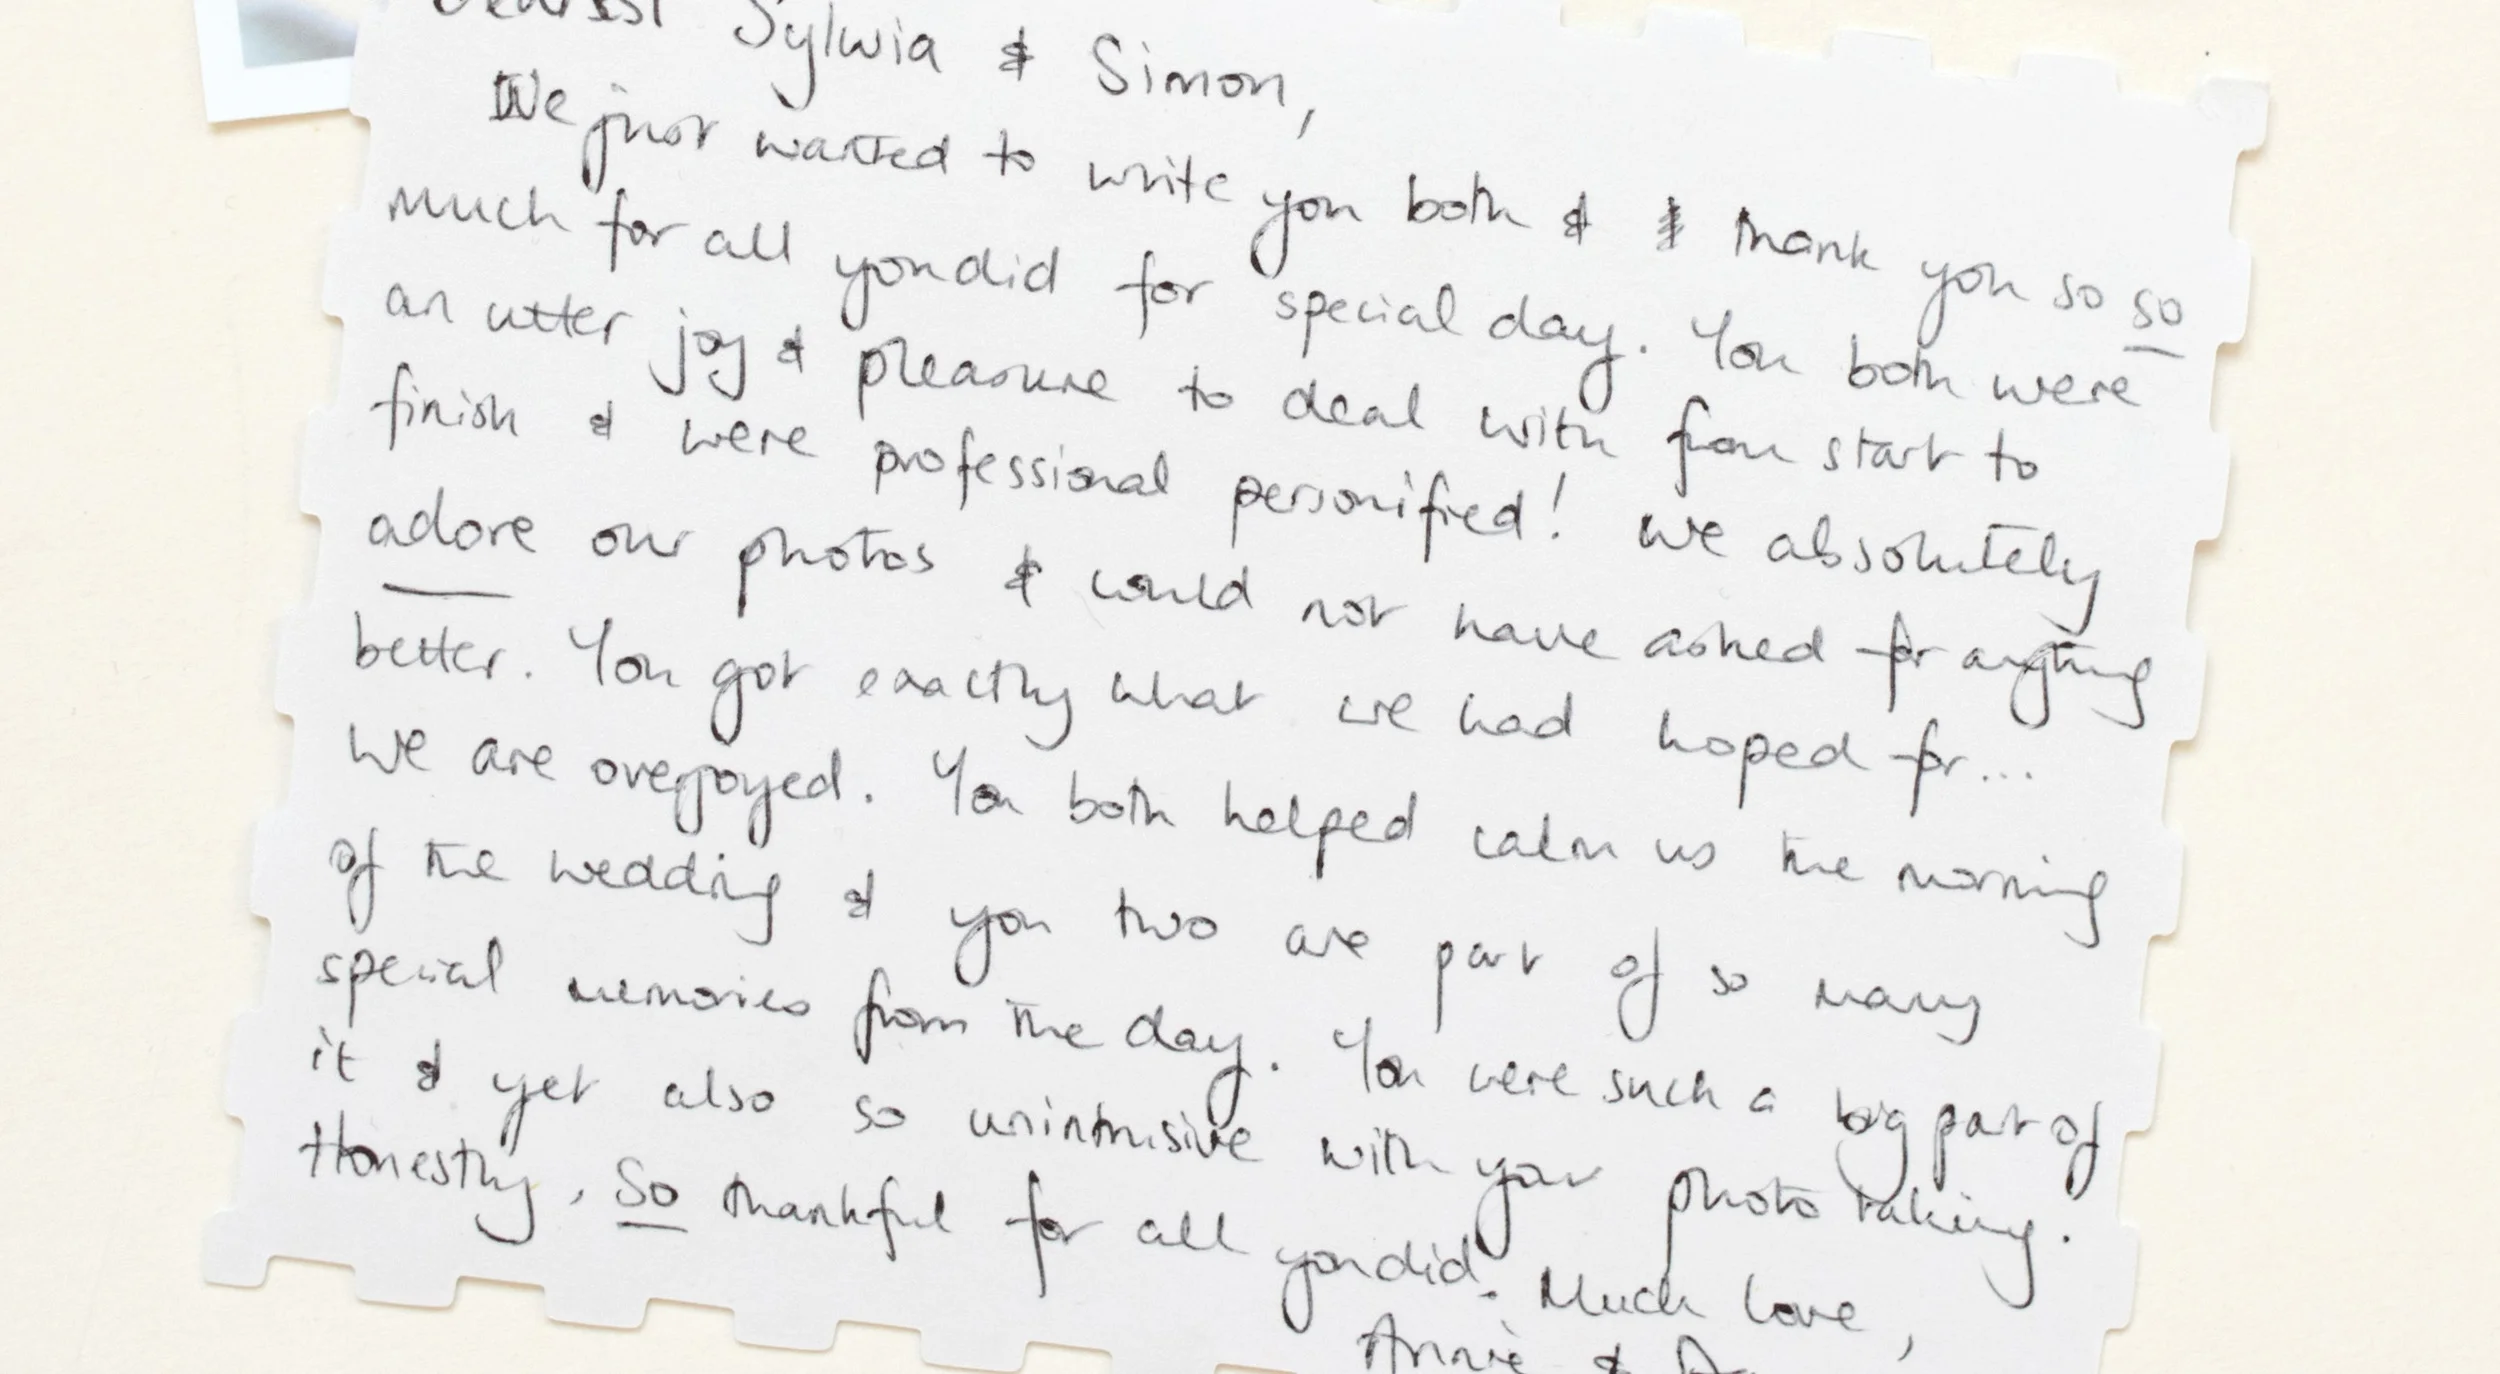 Dearest Sylwia & Simon,
We just wanted to write you both & & thank you so so
much for all you did for special day. You both were
an utter joy & pleasure to deal with from start to
finish & were professional personified! We absolutely
adore our photos & could not have asked for anything
better. You got exactly what we had hoped for...
We are overjoyed. You both helped calm us the morning
of the wedding & you two are part of so many
special memories from the day. You were such a big part of
it & yet also so unintrusive with your photo taking.
Honestly, So thankful for all you did. Much love,
Annie &